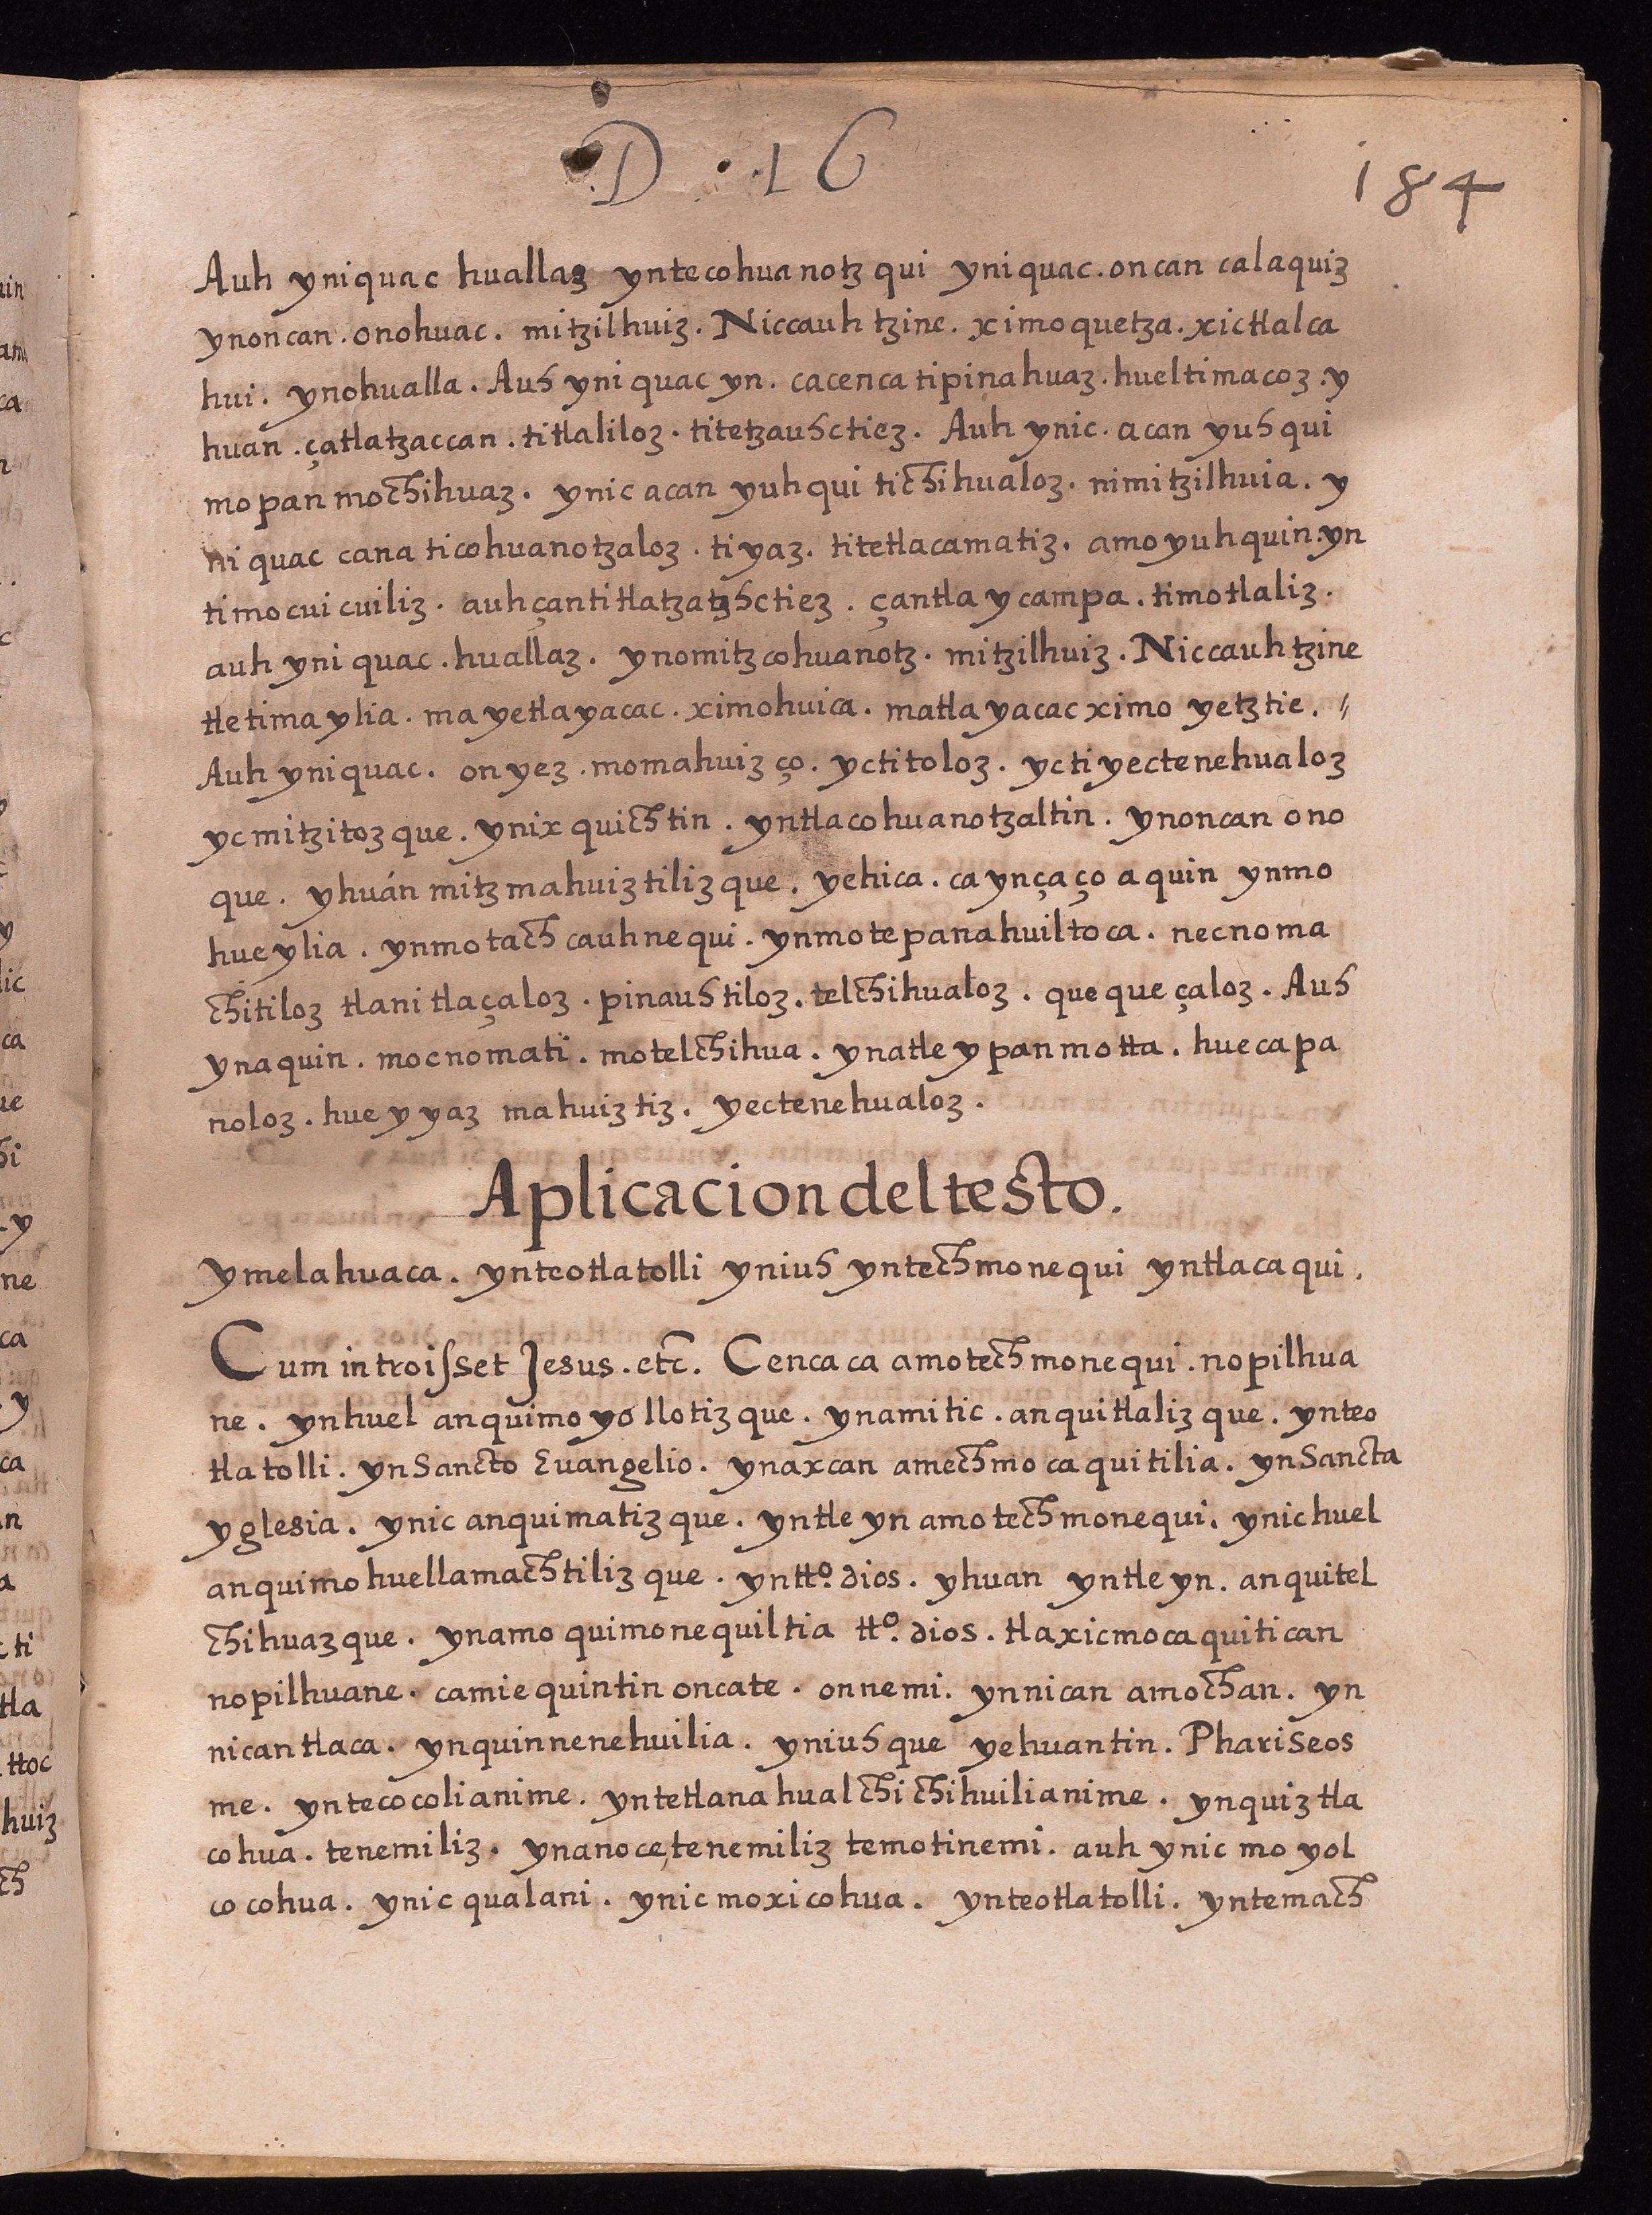 D . 16
184
Auh yniquac huallaz yntecohuanotz qui yniquac. oncan calaquiz
ynoncan. onohuac. mitzilhuiz. Niccauh tzine. ximoquetza. xictlalca
hui. ynohualla. Auh yniquac yn. cacenca tipinahuaz. hueltimacoz. y
huan. çatlatzaccan. titlaliloz. titetzauhctiez. Auh ynic. acan yuhqui
mopan mochihuaz. ynic acan yuhqui tichihualoz. nimitzilhuia. y
ni quac cana ticohuanotzaloz. tiyaz. titetlacamatiz. amo yuhquin. yn
timocuicuiliz. auh çantitlatzatzhctiez. çantla ycampa. timotlaliz.
auh yniquac. huallaz. ynomitzcohuanotz. mitzilhuiz. Niccauhtzine
tletimaylia. mayetlayacac. ximohuica. matlayacac ximo yetztie. //
Auh yniquac. onyez. momahuizço. yctitoloz. yctiyectenehualoz
ycmitzitozque. ynixquichtin. yntlacohuanotzaltin. ynoncan ono
que. yhuán mitzmahuiztilizque. yehica. ca ynçaço aquin ynmo
hueylia. ynmotachcauhnequi. ynmotepanahuiltoca. necnoma
chitiloz tlanitlaçaloz. pinauhtiloz. telchihualoz. quequeçaloz. Auh
ynaquin. mocnomati. motelchihua. ynatle ypanmotta. huecapa
noloz. hueyyaz mahuiztiz. yectenehualoz.
Aplicacion del testo.
Ymelahuaca. ynteotlatolli yniuh yntechmonequi yntlacaqui.
Cum introisset Jesus. etc. Cenca ca amotechmonequi. nopilhua
ne. ynhuel anquimoyollotizque. ynamitic. anquitlalizque. ynteo
tlatolli. ynSancto Euangelio. ynaxcan amechmocaquitilia. ynSancta
yglesia. ynic anquimatizque. yntleyn amotechmonequi. ynichuel
anquimohuellamachtilizque. yntto. dios. yhuan yntleyn. anquitel
chihuazque. ynamo quimonequiltia tto. dios. tlaxicmocaquitican
nopilhuane. camiequintin oncate. onnemi. ynnican amochan. yn
nicantlaca. ynquinnenehuilia. yniuhque yehuantin. Phariseos
me. yntecocolianime. yntetlanahualchichihuilianime. ynquiztla
cohua. tenemiliz. ynanoce, tenemiliz temotinemi. auh ynic mo yol
cocohua. ynic qualani. ynic moxicohua. ynteotlatolli. yntemach